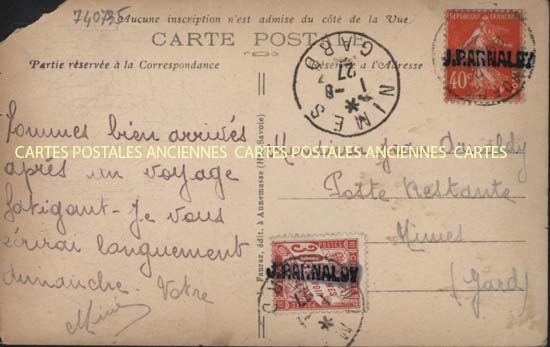 740735
Aucune inscription n'est admise du côté de la Vue.
CARTE POSTALE
Partie réservée à la Correspondance
Réservée à l'Adresse
RÉPUBLIQUE FRANÇAISE
40c
J. PARNALDY
NIMES
GARD
8
1
27
Sommes bien arrivés
après un voyage
fatigant - Je vous
écrirai longuement
dimanche. Votre
Mimi
CARTES POSTALES ANCIENNES CARTES POSTALES ANCIENNES CARTES POSTALES ANCIENNES
Fauraz, édit. à Annemasse (Hte-Savoie)
Monsieur
Poste Restante
Nimes
(Gard)
30
J. PARNALDY